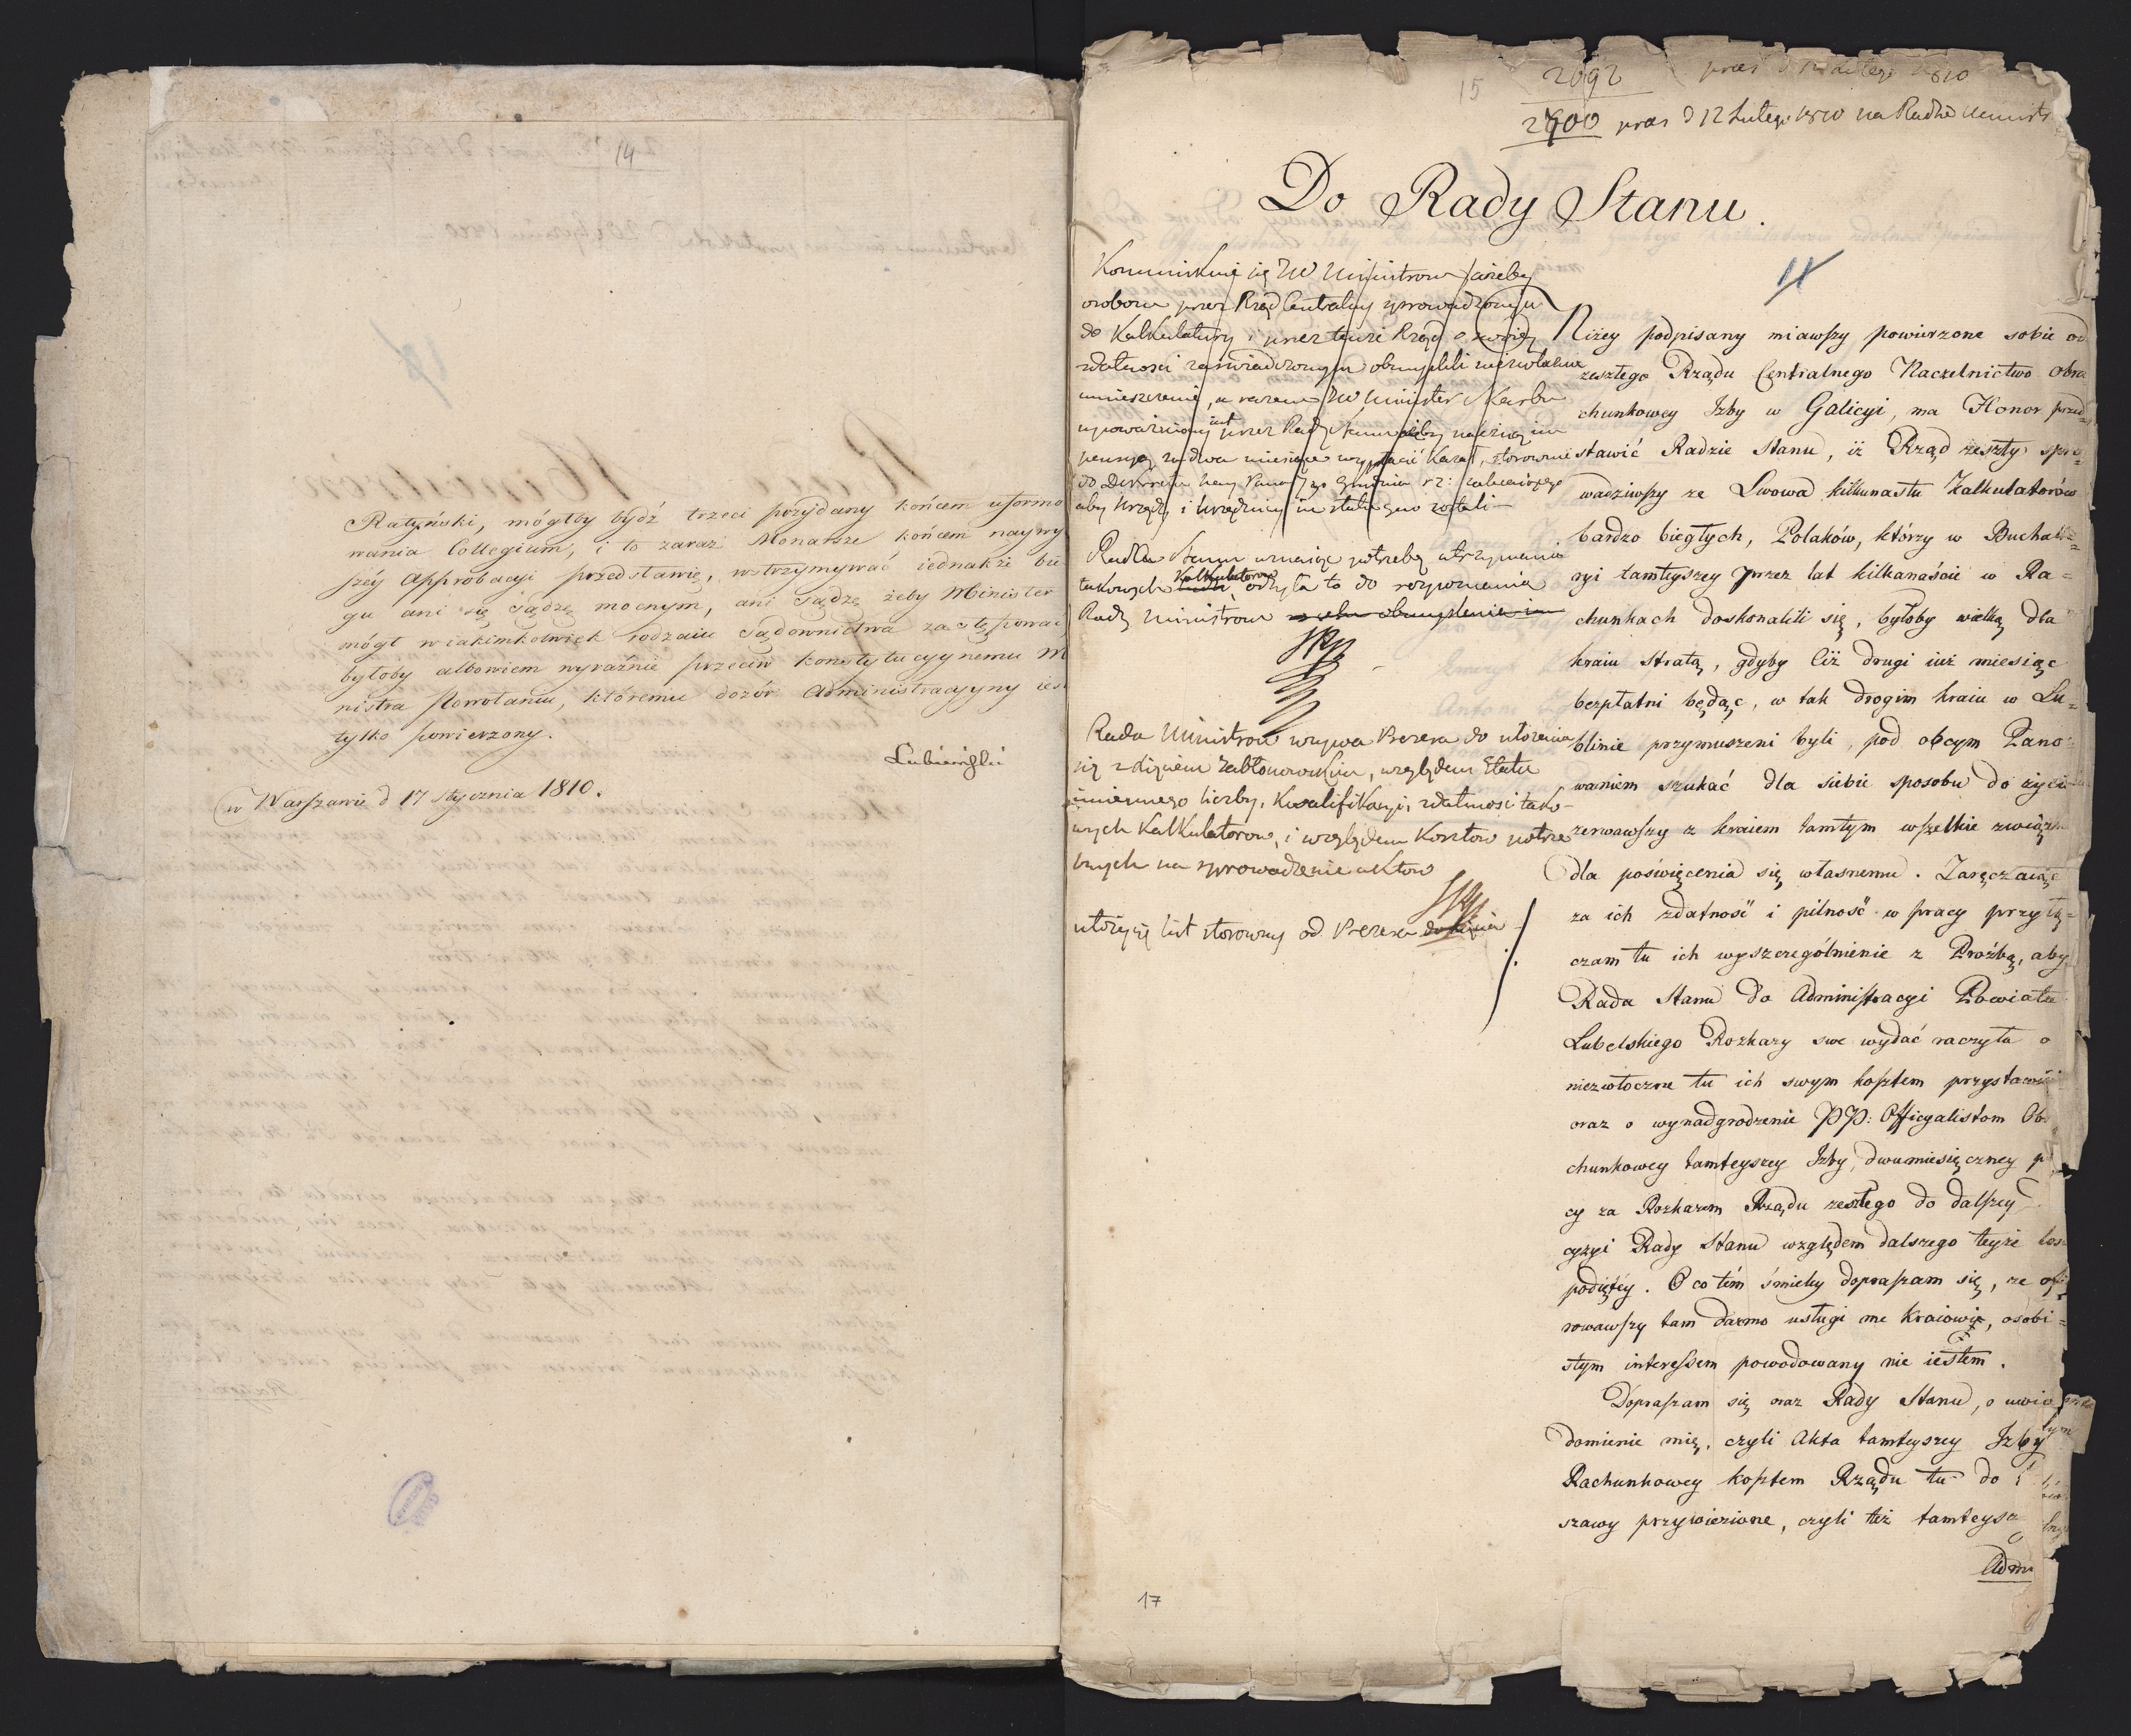 14
Ratyński, mógłby bydź trzeci przydany końcem uformo
wania Collegium, i to zaraz Monarsze końcem naywy
széy Approbacyi przedstawię, wstrzymywać iednakże bie
gu ani się sądzę mocnym, ani sądzę żeby Minister
mógł w iakimkolwiek rodzaiu Sądownictwa zastępować
byłoby albowiem wyraźnie przeciw konstytucyynemu M
nistra powołaniu, któremu dozór Administracyyny iest
tylko powierzony.
Lubieński
w Warszawie d 17 stycznia 1810.
15
2092
2900 praes d 12 Lutego 1810 na Radzie Minist
Do Rady Stanu.
Kommunikuie się JW Ministrowi Skarbu ażeby
osobom przez Rząd Centralny sprowadzonym
do Kalkulatury i przez tenże Rząd o swoiey
zdatności zaświadczonym obmyślili niezwłoczne
umieszczenie, a razem JW Minister Skarbu
upoważniony iest przez Radę Stanu ażeby należącą im
pensyą za dwa miesiące wypłacić kazał, stosownie
do Dekretu Grudnia
aby Urzędy i Urzędnicy zostali
Rada Stanu uznaiąc potrzebę utrzymania
takowych Kalkulatorów, odsyła to do rozpoznania
Rady Ministrow w celu obmyślenia im
Rada Ministrow wzywa Prezesa do ułożenia
się z Xięciem Jabłonowskim, względem Etatu
imiennego liczby, kwalifikacyi, zdatności tako-
wych Kalkulatorow, i względem kosztow potrze
bnych na sprowadzenie aktow
ułoży się list stosowny od Prezesa do Xięcia
11
Niżey podpisany miawszy powierzone sobie od
zeszłego Rządu Centralnego Naczelnictwo Obra
chunkowey Izby w Galicyi, ma Honor przed
stawić Radzie Stanu, iż Rząd zeszły spro
wadziwszy ze Lwowa kilkunastu Kalkulatorów
bardzo biegłych, Polaków, którzy w Buchalte
ryi tamteyszey przez lat kilkanaście w Ra=
chunkach doskonalili się, byłoby wielką dla
kraiu stratą, gdyby Ciż drugi iuż miesiąc
bezpłatni będąc, w tak drogim kraiu w Lu=
blinie przymuszeni byli, pod obcym Pano
waniem szukać dla siebie sposobu do życia
zerwawszy z kraiem tamtym wszelkie związki
dla poświęcenia się własnemu. Zaręczaiąc
za ich zdatność i pilność w pracy przyłą=
czam tu ich wyszczególnienie z Proźbą, aby
Rada Stanu do Administracyi Powiatu
Lubelskiego Rozkazy swe wydać raczyła o
niezwłoczne tu ich swym kosztem przystawi
oraz o wynadgrodzenie PP: Officyalistom Ob
chunkowey tamteyszey Izby, dwumiesięczney p
cy za Rozkazem Rządu zeszłego do dalszey
cyzyi Rady Stanu względem dalszego teyże los
podiętéy. O co tém śmieley dopraszam się, że ofi
rowawszy tam darmo usługi me kraiowi, osobi=
stym interessem powodowany nie iestem.
Dopraszam się oraz Rady Stanu, o uwia
domienie mię, czyli Akta tamteyszey Izby
Rachunkowey kosztem Rządu tu do
szawy przywiezione, czyli też tamteysz
Adm
17